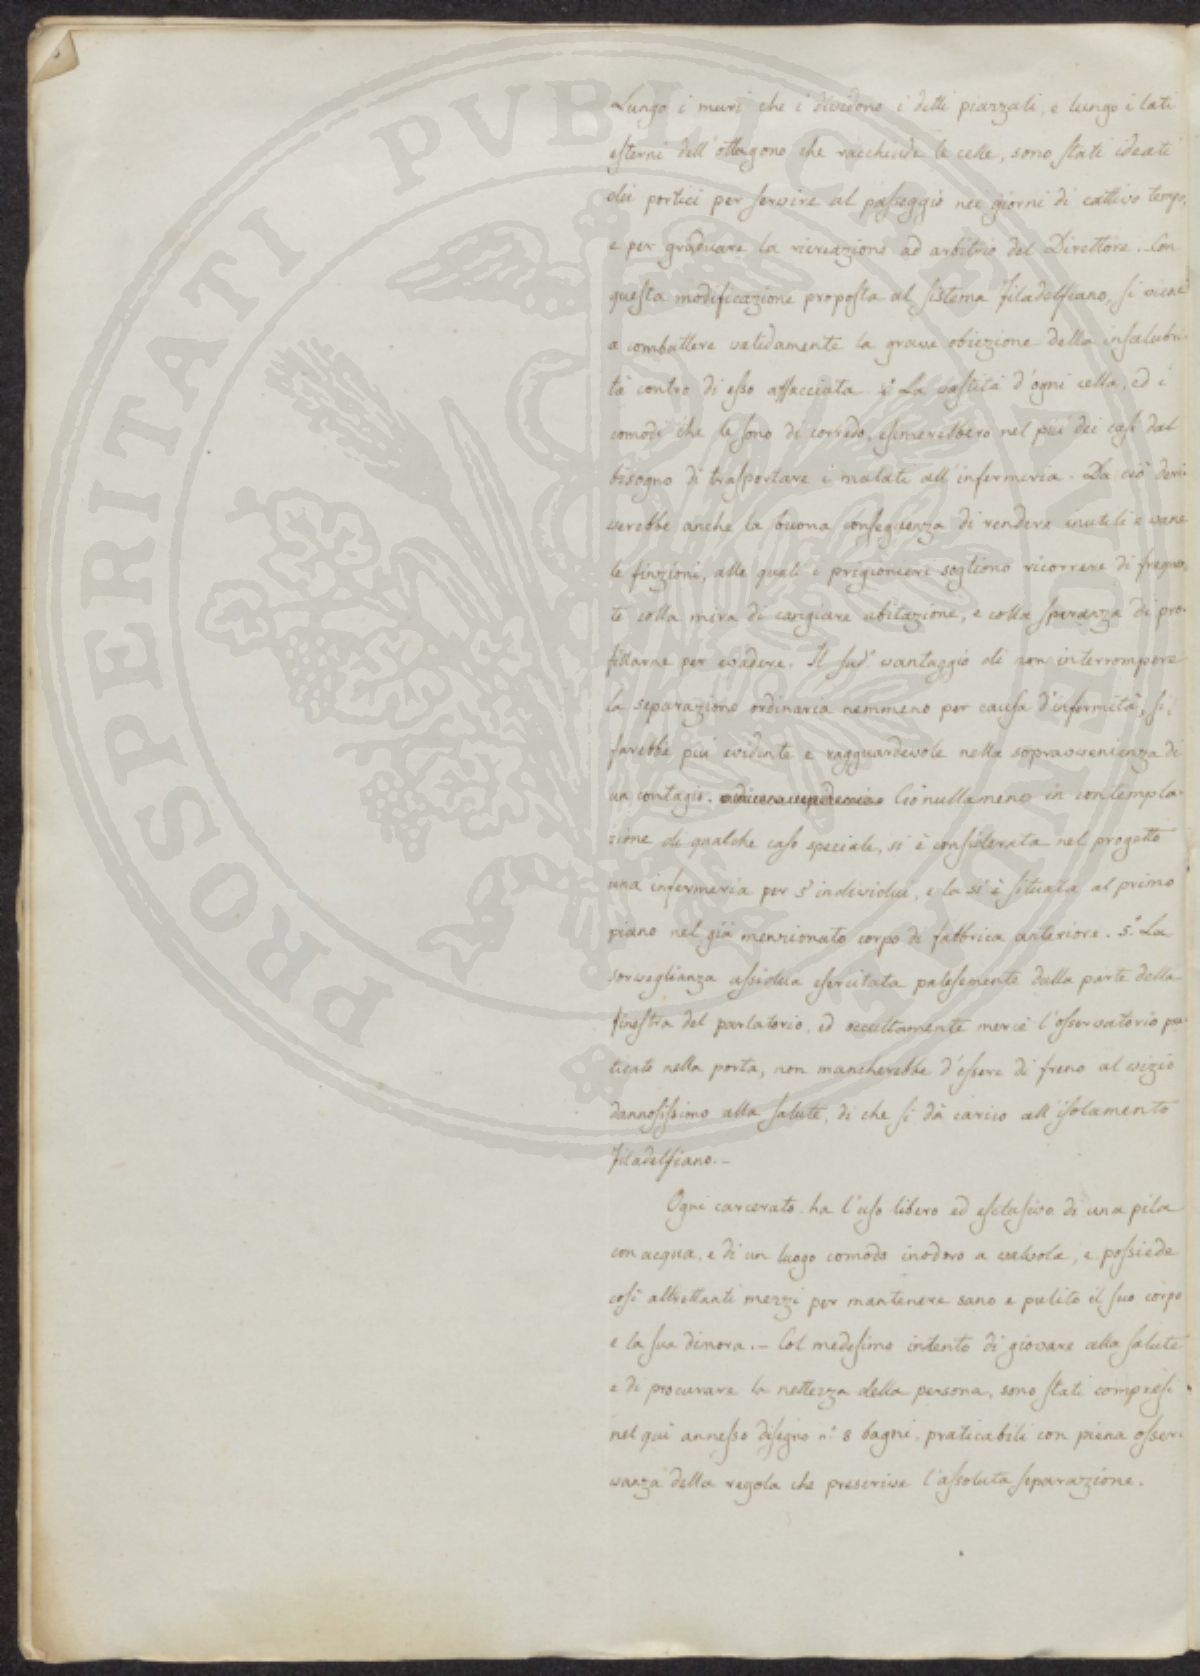 Lungo i muri che i dividono i detti piazzali, e lungo i lati
esterni dell'ottagono che racchiude le celle, sono stati ideati
dei portici per servire al passeggio nei giorni di cattivo tempo,
e per graduare la ricreazione ad arbitrio del Direttore. Con
questa modificazione proposta al sistema Filadelfiano, si viene
a combattere validamente la grave obiezione della insalubri-
tà contro di esso affacciata. 4° La vastità d'ogni cella, ed i
comodi che le sono di corredo, esimerebbero nel più dei casi dal
bisogno di trasportare i malati all'infermeria. Da ciò deri-
verebbe anche la buona conseguenza di rendere inutili e vane
le finzioni, alle quali i prigionieri sogliono ricorrere di frequen-
te colla mira di cangiare abitazione, e colla speranza di pro-
fittarne per evadere. Il sud° vantaggio di non interrompere
la separazione ordinaria nemmeno per causa d'infermità, si
farebbe più evidente e ragguardevole nella sopravvenienza di
un contagio. Ciò nullameno in contempla-
zione di qualche caso speciale, si è considerata nel progetto
una infermeria per 5 individui, e la si è situata al primo
piano nel già menzionato corpo di fabbrica anteriore. 5° La
sorveglianza assidua esercitata palesemente dalla parte della
finestra del parlatorio, ed occultamente mercè l'osservatorio pra-
ticato nella porta, non mancherebbe d'essere di freno al vizio
dannosissimo alla salute, di che si dà carico all'isolamento
Filadelfiano.–
Ogni carcerato ha l'uso libero ed esclusivo di una pila
con acqua, e di un luogo comodo inodoro a valvola, e possiede
così altrettanti mezzi per mantenere sano e pulito il suo corpo
e la sua dimora.– Col medesimo intento di giovare alla salute
e di procurare la nettezza della persona, sono stati compresi
nel qui annesso disegno n° 8 bagni, praticabili con piena osser-
vanza della regola che prescrive l'assoluta separazione.
PROSPERITATI PVBLICAE